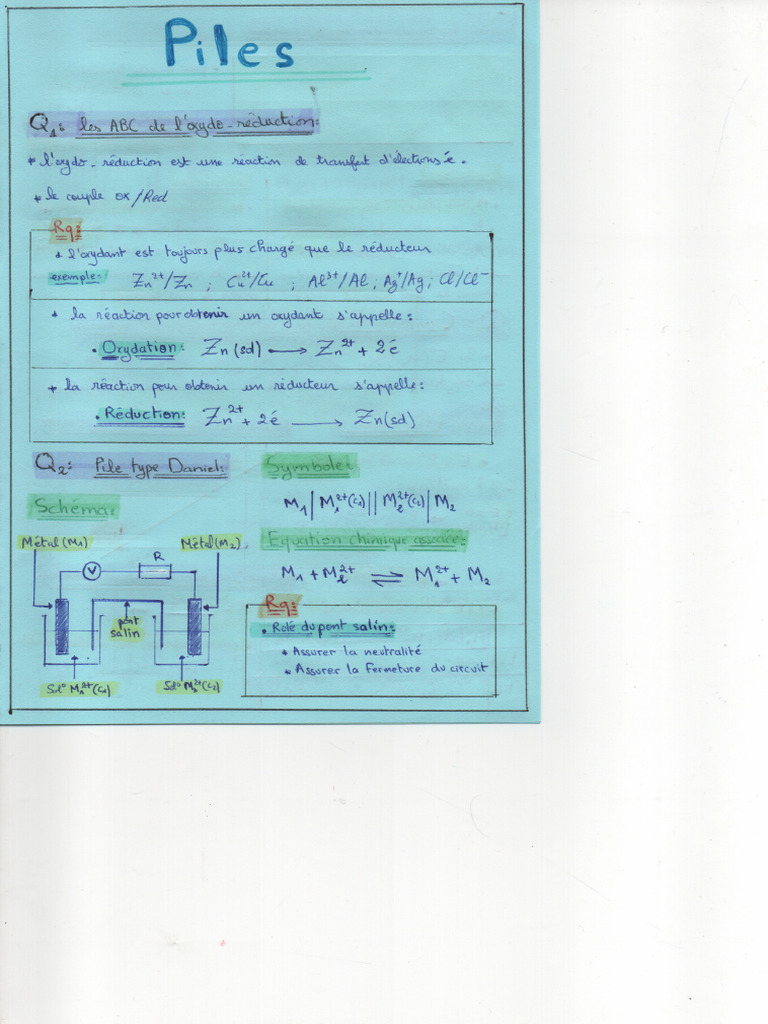 Piles
Q1: les ABC de l'oxydo-réduction:
* l'oxydo-réduction est une réaction de transfert d'élections é.
* le couple ox/Red
Rq:
* l'oxydant est toujours plus chargé que le réducteur
exemple: Zn²⁺/Zn ; Cu²⁺/Cu ; Al³⁺/Al ; Ag⁺/Ag ; Cl/Cl⁻
* la réaction pour obtenir un oxydant s'appelle:
• Oxydation: Zn(sd) ⟶ Zn²⁺ + 2é
* la réaction pour obtenir un réducteur s'appelle:
• Réduction: Zn²⁺ + 2é ⟶ Zn(sd)
Q2: Pile type Daniel:
Symbole:
M₁|M₁²⁺(c₁)||M₂²⁺(c₂)|M₂
Schéma:
Equation chimique associée:
M₁ + M₂²⁺ ⇌ M₁²⁺ + M₂
Métal(M1)
Métal(M2)
V
R
pont
salin
Sol° M₁²⁺(c₁)
Sol° M₂²⁺(c₂)
Rq:
• Rolé du pont salin:
* Assurer la neutralité
* Assurer la Fermeture du circuit